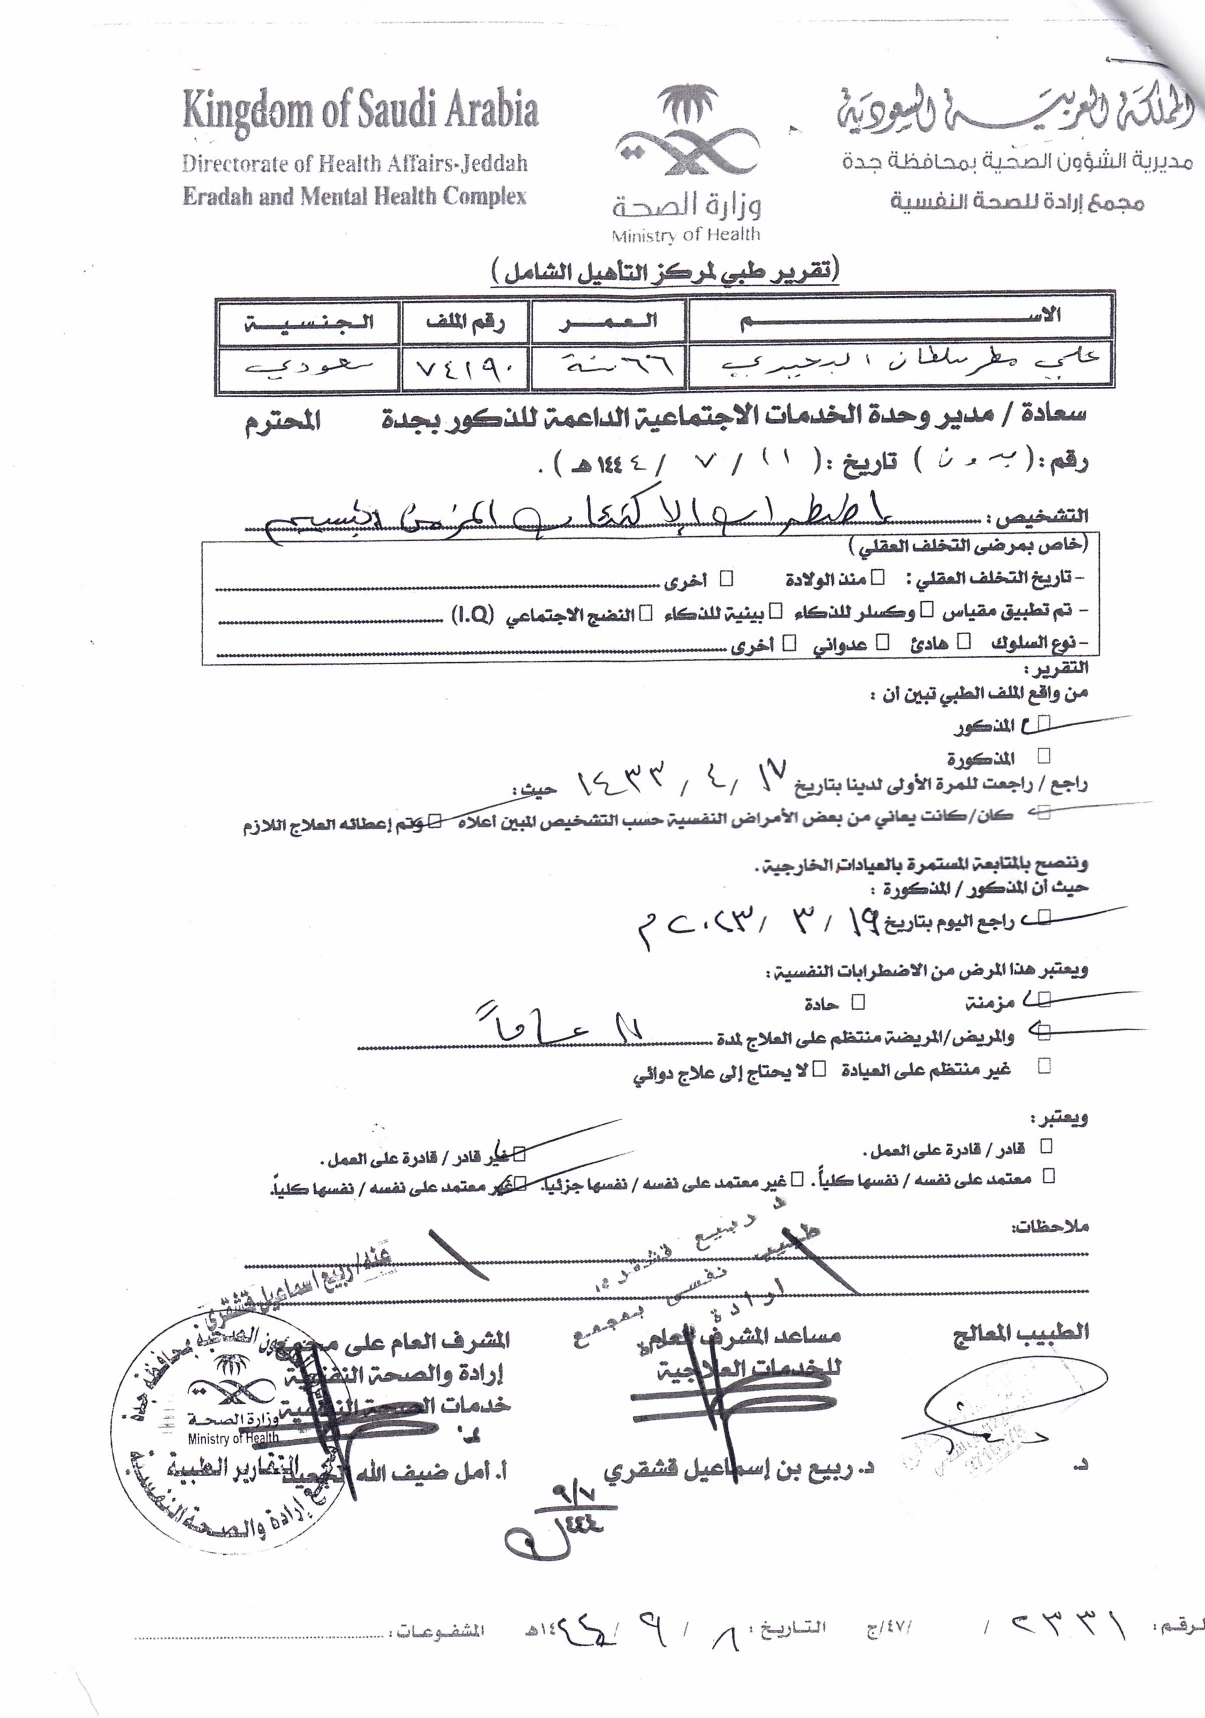 Kingdom of Saudi Arabia
Directorate of Health Affairs-Jeddah
Eradah and Mental Health Complex
وزارة الصحة
Ministry of Health
المملكة العربية السعودية
مديرية الشؤون الصحية بمحافظة جدة
مجمع إرادة للصحة النفسية
(تقرير طبي لمركز التأهيل الشامل)
الاســم العمـر رقم الملف الجنسيـة
علي مطر سلطان ٦٦ سنة ٧٤١٩٠ سعودي
سعادة / مدير وحدة الخدمات الاجتماعية الداعمة للذكور بجدة المحترم
رقم: (بدون) تاريخ: (١١ / ٧ / ١٤٤٤ هـ).
التشخيص: اضطراب الاكتئاب المزمن الجسيم
(خاص بمرضى التخلف العقلي)
- تاريخ التخلف العقلي: □ منذ الولادة □ أخرى
- تم تطبيق مقياس □ وكسلر للذكاء □ بينية للذكاء □ النضج الاجتماعي (I.Q)
- نوع السلوك □ هادئ □ عدواني □ أخرى
التقرير:
من واقع الملف الطبي تبين أن:
□ المذكور
□ المذكورة
راجع / راجعت للمرة الأولى لدينا بتاريخ ١٧ / ٤ / ١٤٣٣ حيث:
□ كان/كانت يعاني من بعض الأمراض النفسية حسب التشخيص المبين أعلاه □ وتم إعطائه العلاج اللازم
وننصح بالمتابعة المستمرة بالعيادات الخارجية.
حيث أن المذكور / المذكورة:
□ راجع اليوم بتاريخ ١٩ / ٣ / ٢٠٢٣ م
ويعتبر هذا المرض من الاضطرابات النفسية:
□ مزمنة □ حادة
□ والمريض/المريضة منتظم على العلاج لمدة عاماً
□ غير منتظم على العيادة □ لا يحتاج إلى علاج دوائي
ويعتبر:
□ قادر / قادرة على العمل. □ غير قادر / قادرة على العمل.
□ معتمد على نفسه / نفسها كلياً. □ غير معتمد على نفسه / نفسها جزئياً. □ غير معتمد على نفسه / نفسها كلياً.
ملاحظات:
د ربيع قشقري
طبيب نفسي بمجمع
إرادة
عنه/ ربيع اسماعيل قشقري
الطبيب المعالج
مساعد المشرف العام
للخدمات العلاجية
المشرف العام على مجمع
إرادة والصحة النفسية
خدمات الصحة النفسية
وزارة الصحة
Ministry of Health
التقارير الطبية
د.
د. ربيع بن إسماعيل قشقري
أ. أمل ضيف الله
٩/٧
١٤٤٤
الرقم: ٢٣٣١ / ٤٧/ج التاريخ: ٨ / ٩ / ١٤٤٤هـ المشفوعات: